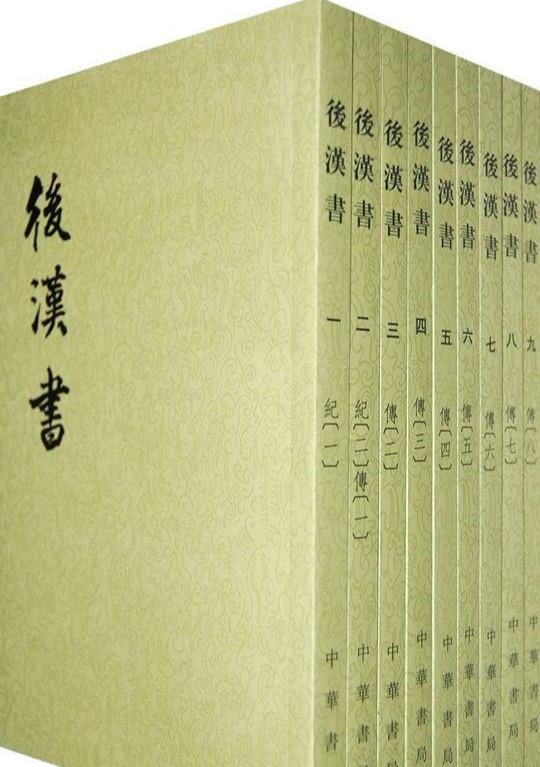 後漢書
後漢書 一 紀〔一〕 中華書
後漢書 二 紀〔二〕傳〔一〕 中華書
後漢書 三 傳〔二〕 中華書
後漢書 四 傳〔三〕 中華書局
後漢書 五 傳〔四〕 中華書局
後漢書 六 傳〔五〕 中華書局
後漢書 七 傳〔六〕 中華書局
後漢書 八 傳〔七〕 中華書局
後漢書 九 傳〔八〕 中華書局